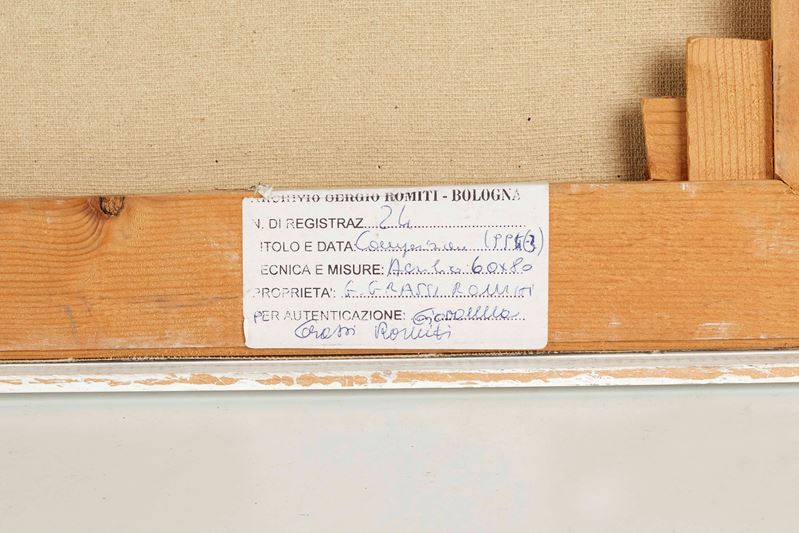 ARCHIVIO SERGIO ROMITI - BOLOGNA
N. DI REGISTRAZ. 24
TITOLO E DATA: Composizione
TECNICA E MISURE: Acrilico 60x80
PROPRIETA': G. GRASSI ROMITI
PER AUTENTICAZIONE: Giovanna
Grassi Romiti